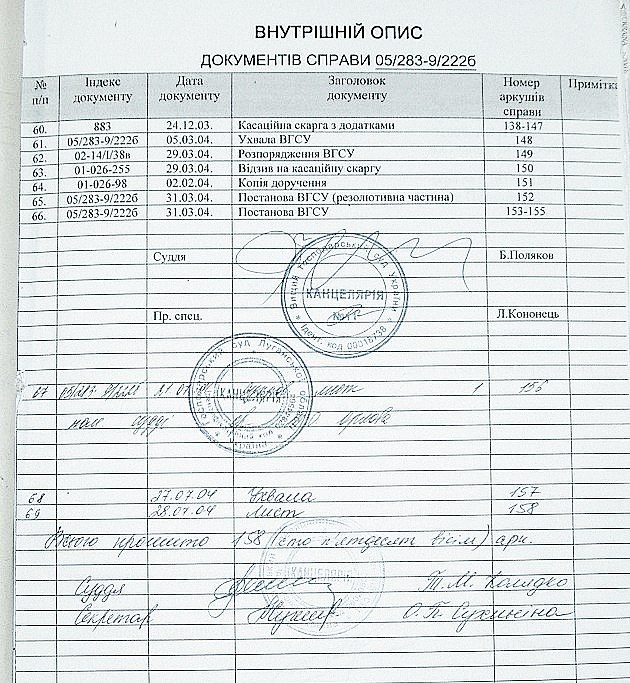 ВНУТРІШНІЙ ОПИС
ДОКУМЕНТІВ СПРАВИ 05/283-9/222б
№ п/п Індекс документу Дата документу Заголовок документу Номер аркушів справи Примітка
60. 883 24.12.03. Касаційна скарга з додатками 138-147
61. 05/283-9/222б 05.03.04. Ухвала ВГСУ 148
62. 02-14/І/38в 29.03.04. Розпорядження ВГСУ 149
63. 01-026-255 29.03.04. Відзив на касаційну скаргу 150
64. 01-026-98 02.02.04. Копія доручення 151
65. 05/283-9/222б 31.03.04. Постанова ВГСУ (резолютивна частнина) 152
66. 05/283-9/222б 31.03.04. Постанова ВГСУ 153-155
Суддя Б.Поляков
Вищий господарський суд України
КАНЦЕЛЯРІЯ
№1
Ідент. код 00018738
Пр. спец. Л.Кононець
Господарський суд Луганської області
КАНЦЕЛЯРІЯ
Україна
67 05/283-9/222б лист 1 156
судді
68 27.07.04 Ухвала 157
69 28.07.04 Лист 158
Всього прошито 158 (сто п'ятдесят вісім) арк.
Суддя Т.М. Колядко
Секретар О.П. Сухинина